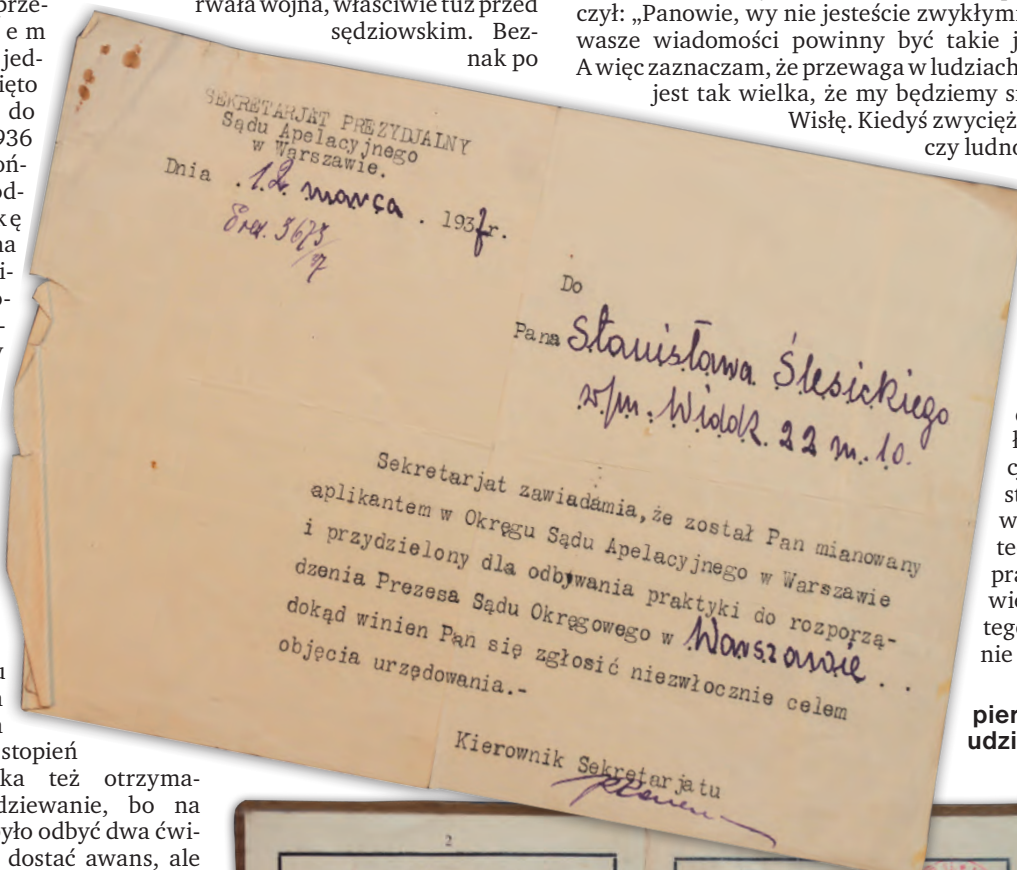 prze-
e m
jed-
ięto
do
936
oń-
od-
kę
na
i-
o-
-
y
u
stopień
ka też otrzyma-
dziewanie, bo na
było odbyć dwa ćwi-
dostać awans, ale
rwała wojna, właściwie tuż przed
sędziowskim. Bez-
nak po
czył: „Panowie, wy nie jesteście zwykłymi
wasze wiadomości powinny być takie j
A więc zaznaczam, że przewaga w ludziach
jest tak wielka, że my będziemy
Wisłę. Kiedyś zwycięż
czy ludno
SEKRETARJAT PREZYDJALNY
Sądu Apelacyjnego
w Warszawie.
Dnia .12 marca . 1937r.
3673/37
Do
Pana Stanisława Ślesickiego
w/m. Widok. 22 m. 10.
Sekretarjat zawiadamia,że został Pan mianowany
aplikantem w Okręgu Sądu Apelacyjnego w Warszawie
i przydzielony dla odbywania praktyki do rozporzą-
dzenia Prezesa Sądu Okręgowego w Warszawie . .
dokąd winien Pan się zgłosić niezwłocznie celem
objęcia urzędowania.-
Kierownik Sekretarjatu
st
w
te
pra
wie
tego
nie
pier
udzi
2